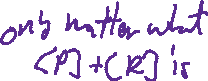 only matter what
[P]+[R] is